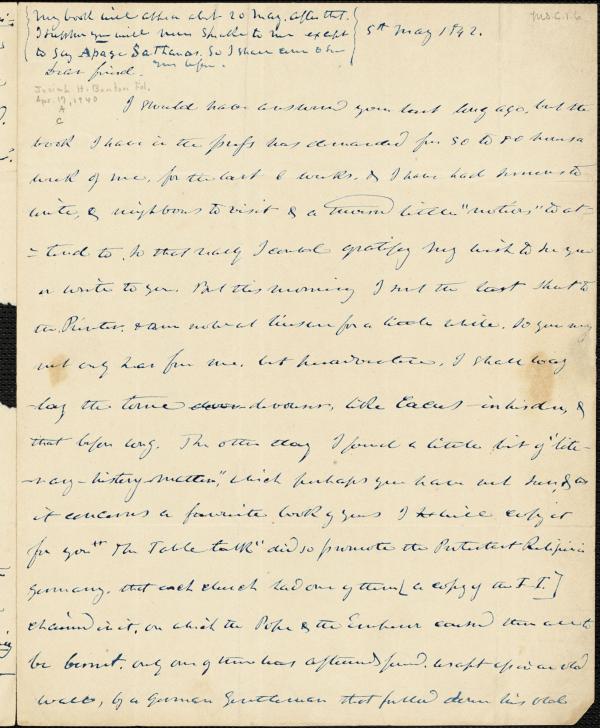 My book will appear abt 20 May. after that.
I suppose you will never speake to me except
to say Apage Sathanas. So I shall come & see
you before.
5th May 1842.
Ms.C.1.6
Dear friend.
Josiah H. Benton Fd.
Apr. 17, 1940
A
C
I should have answered your last long ago, but the
book I have in the press has demanded fm 50 to 80 hours a
week of me, for the last 6 weeks, & I have had sermons to
write, & neighbours to visit & a little "matters" to at-
-tend to, so that really I could gratify my wish to see you
or write to you. But this morning I sent the last sheet to
the Printer, & am now at leisure for a little while. So you may
not only hear from me, but peradventure, I shall way
-lay the tome devourer, like Cacus in his den, &
that before long. The other day I found a little bit of "lite-
-rary-history-matter," which perhaps you have not seen, & as
it concerns a favourite book of yours I will copy it
for you "The Table talk" did so promote the Protestant Religion in
Germany, that each church had one of them [a copy of the T.T.]
chained in it, on which the Pope & the Emperor caused them all to
be burnt, only one of them was afterwards found, wrapt up in an old
walls, by a German Gentleman that pulled down his old